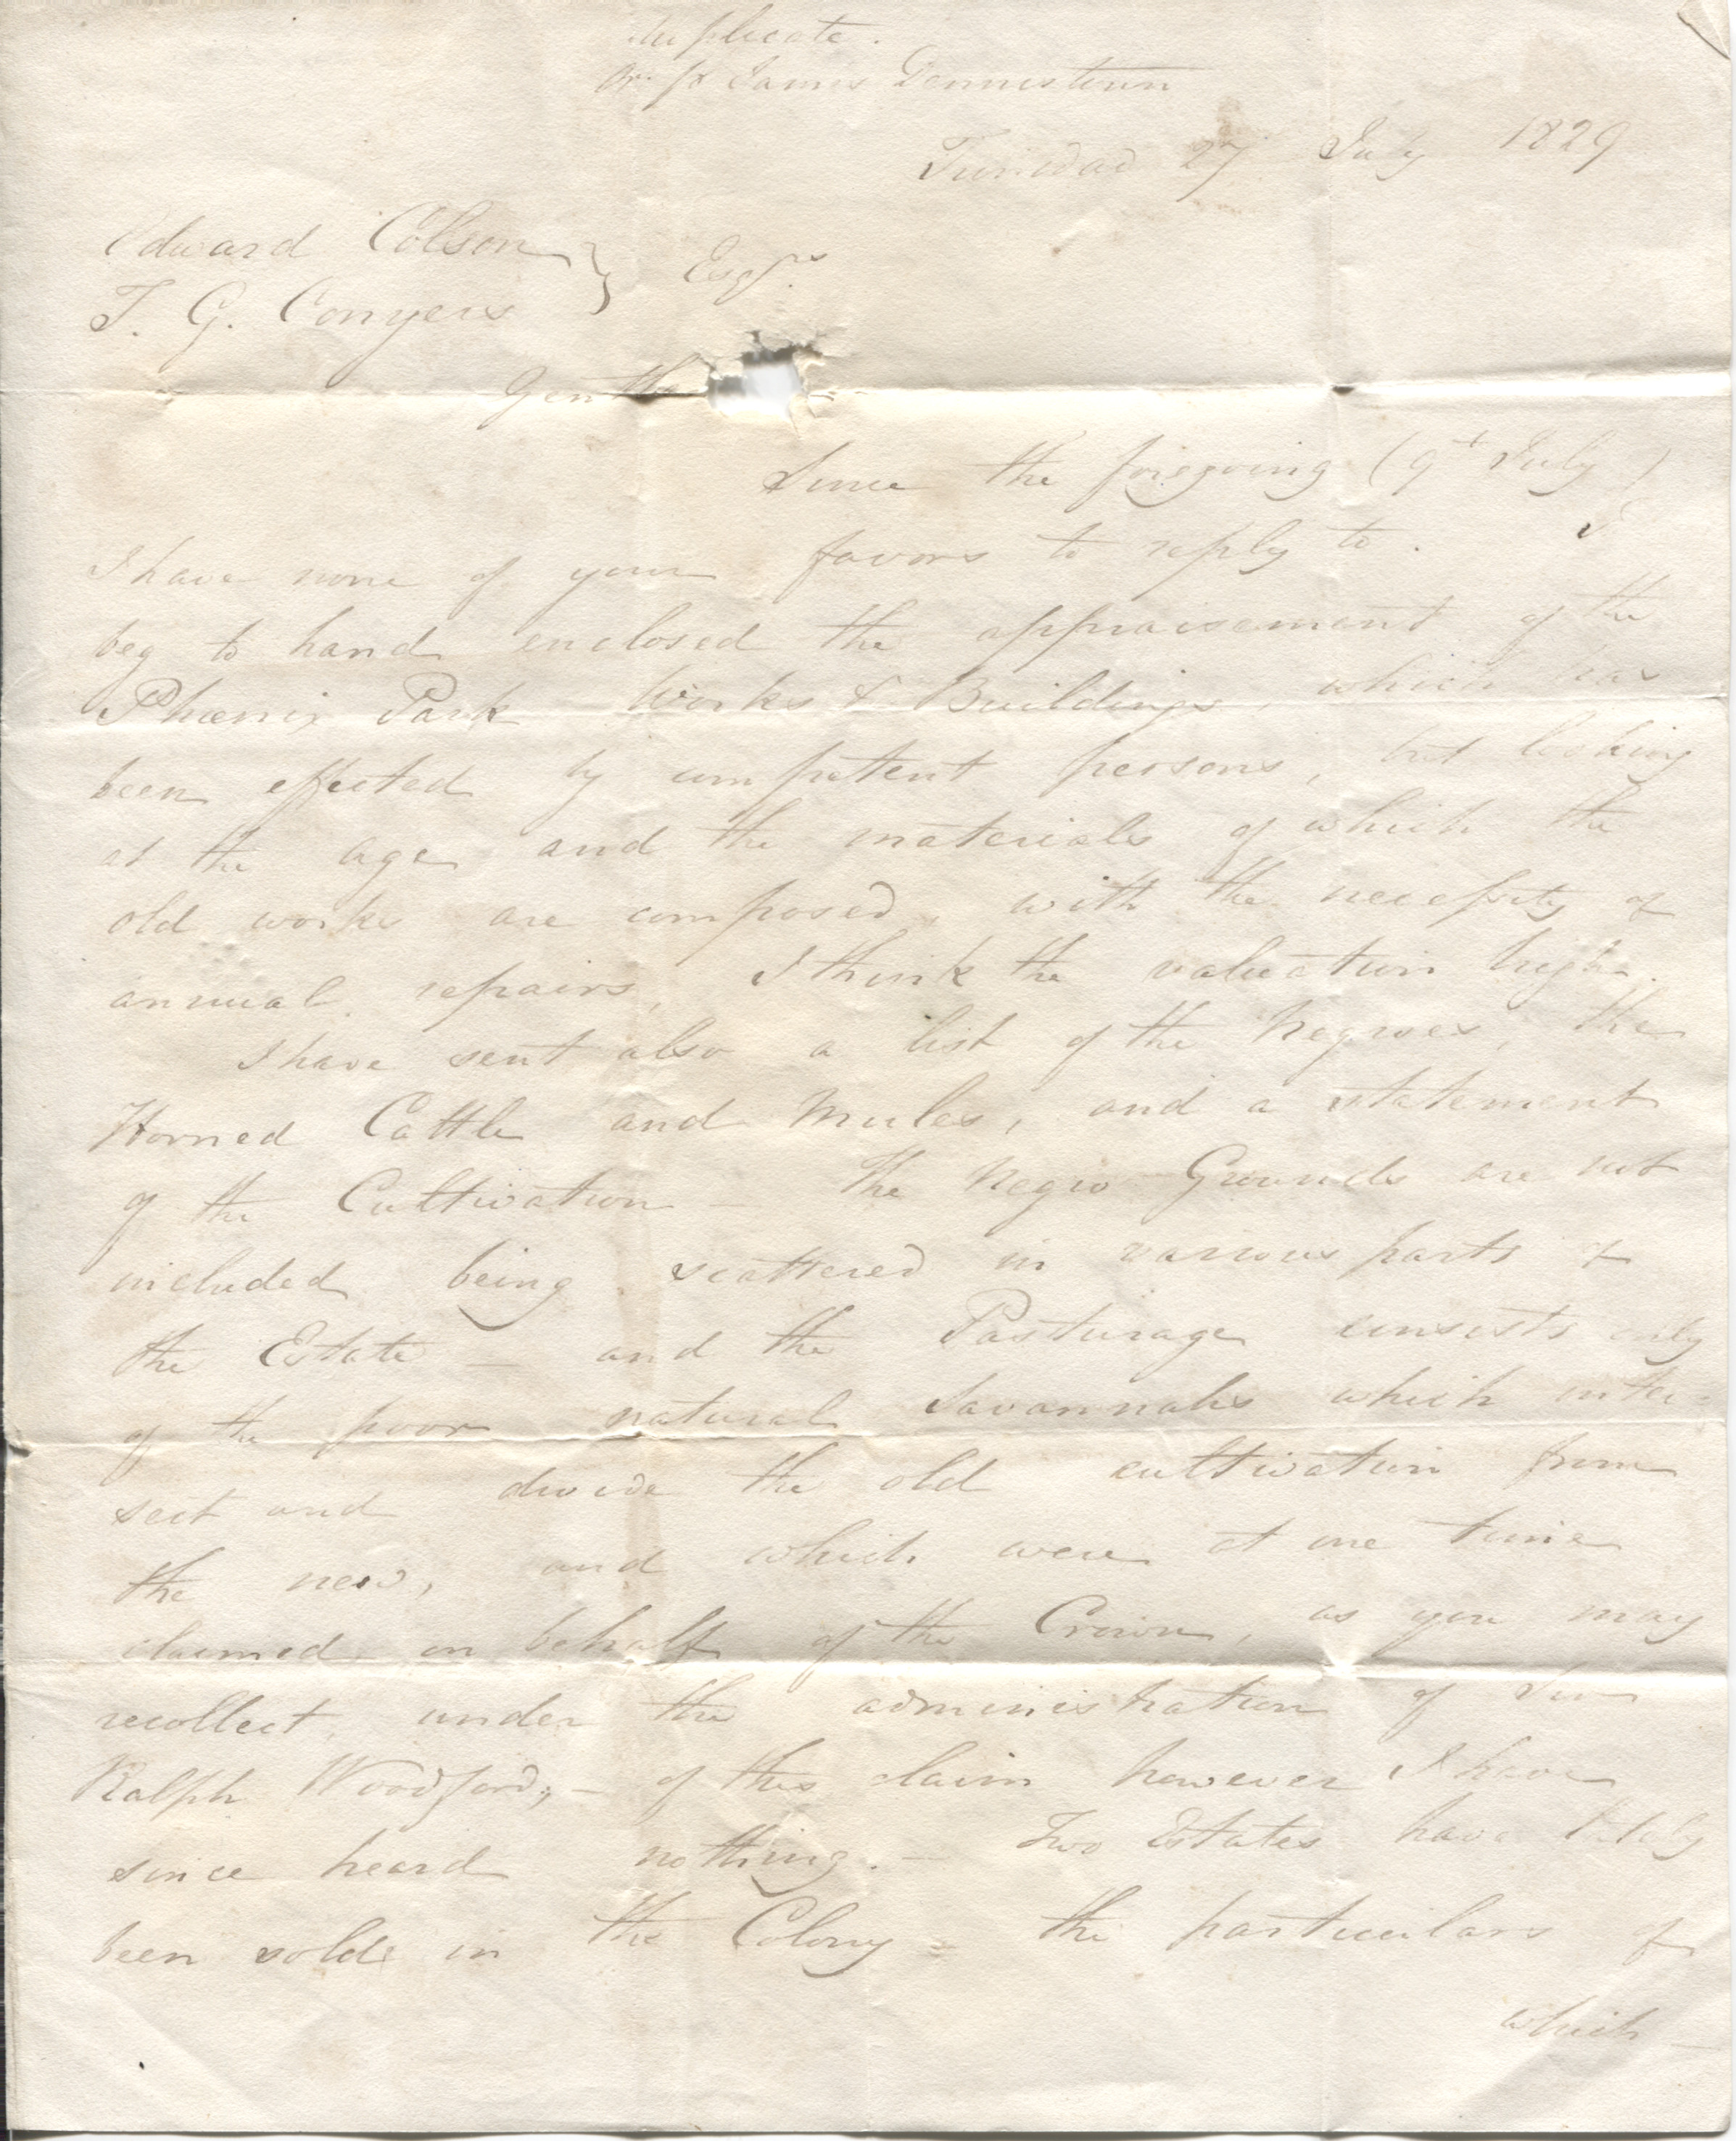 Duplicate.
Or. p James Dennistown
Trinidad 27 July 1829
Edward Colson
T. G. Conyers } Esqrs
Gentle
Since the foregoing (9t July)
I have none of your favors to reply to. I
beg to hand enclosed the appraisement of the
Phœnix Park Works & Buildings, which has
been effected by competent persons, but looking
at the age and the materials of which the
old works are composed, with the necessity of
annual repairs, I think the valuation high.
I have sent also a list of the Negroes, the
Horned Cattle and Mules, and a statement
of the Cultivation – The Negro Grounds are not
included being scattered in various parts of
the Estate – and the Pasturage consists only
of the poor natural Savannahs which inter-
sect and divide the old cultivation from
the new, and which were at one time
claimed on behalf of the Crown, as you may
recollect, under the administration of Sir
Ralph Woodford; – of this claim however I have
since heard nothing. – Two Estates have lately
been sold in the Colony – the particulars of
which